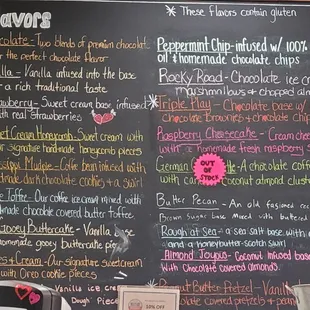 avors
colate - Two blends of premium chocolat
r the perfect chocolate flavor
illa - Vanilla infused into the base
a rich traditional taste
awberry - Sweet cream base infused
with real Strawberries
eet Cream Honeycomb - Sweet cream with
r Signature handmade honeycomb pieces
- Coffee bean infused with
dmade dark chocolate cookie & a swirl
e Toffee - Our coffee ice cream mixed with
dmade chocolate covered butter toffee
Gooey Buttercake - Vanilla base
homemade gooey buttercake pie
es + Cream - Our signature sweet cream
with Oreo cookie pieces
- Vanilla ice cre
Dough Piec
* These flavors contain gluten
Peppermint Chip - infused w/ 100%
oil & homemade chocolate chips
Rocky Road - Chocolate ice cr
marshmallows + chopped alm
* Triple Play - Chocolate base w/
Chocolate Brownies + chocolate chip
Raspberry Cheesecake - Cream chee
with homemade fresh raspberry s
German - A chocolate coff
with car coconut almond cluste
OUT OF STOCK
Butter Pecan - An old fashioned rec
Brown Sugar base Mixed with buttered
Rough at Sea - a sea salt base with
and a honey butter-scotch swirl
Almond Joyous - Coconut infused base
With Chocolate covered almonds.
Peanut Butter Pretzel - Vanill
late covered pretzels + pean